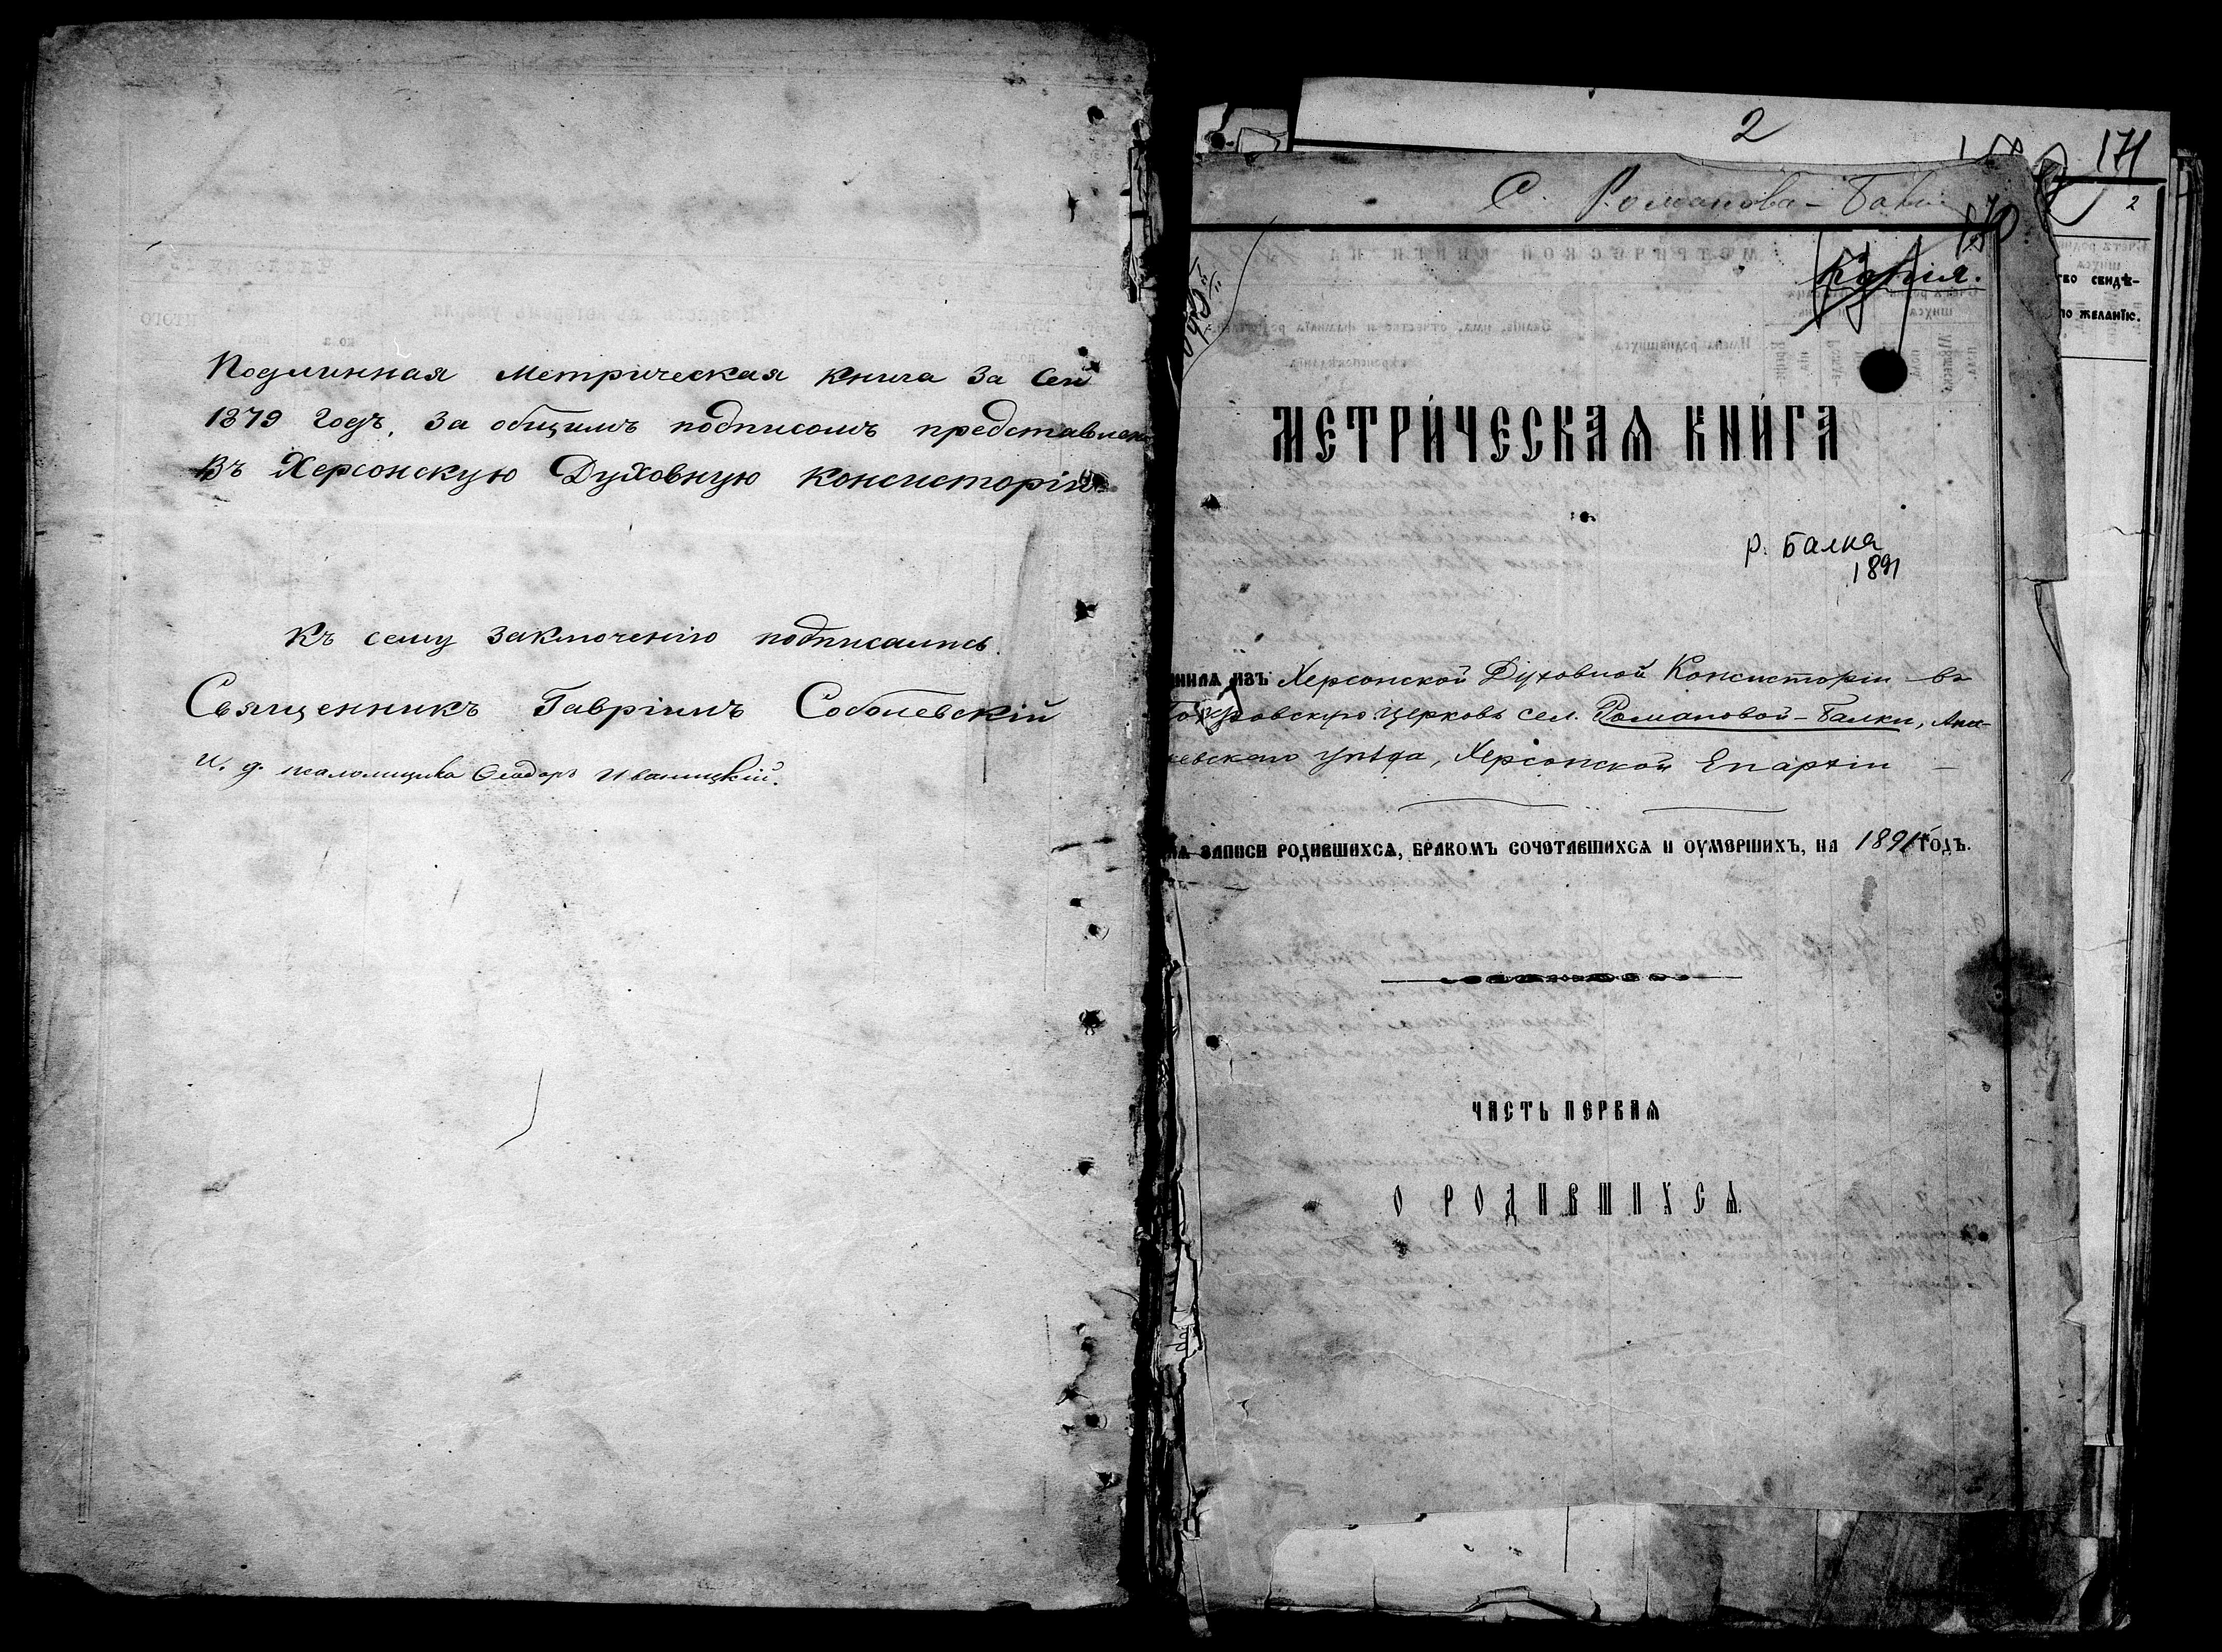 Подлинная Метрическая книга за сей
1879 годъ, за общимъ подписомъ представлен
въ Херсонскую Духовную Консисторію
Къ сему заключенію подписались
Священникъ Гавріилъ Соболевскій
И. д. псаломщика Ѳеодоръ Иваницкій.
2
171
С. Романова-Балк
170
Копія.
2
во свидѣ-
по желанію.
МЕТРИ́ЧЕСКАѦ КНИ́ГА
р. Балка
1891
изъ Херсонской Духовной Консисторіи въ
Покровскую церковь сел. Романовой-Балки, Ана-
евскаго уѣзда, Херсонской Епархіи —
записи родившихсѧ, бракомъ сочетавшихсѧ и оумершихъ, на 1891 годъ.
ЧАСТЬ ПЕРВАѦ
О РОДИВШИХСѦ.